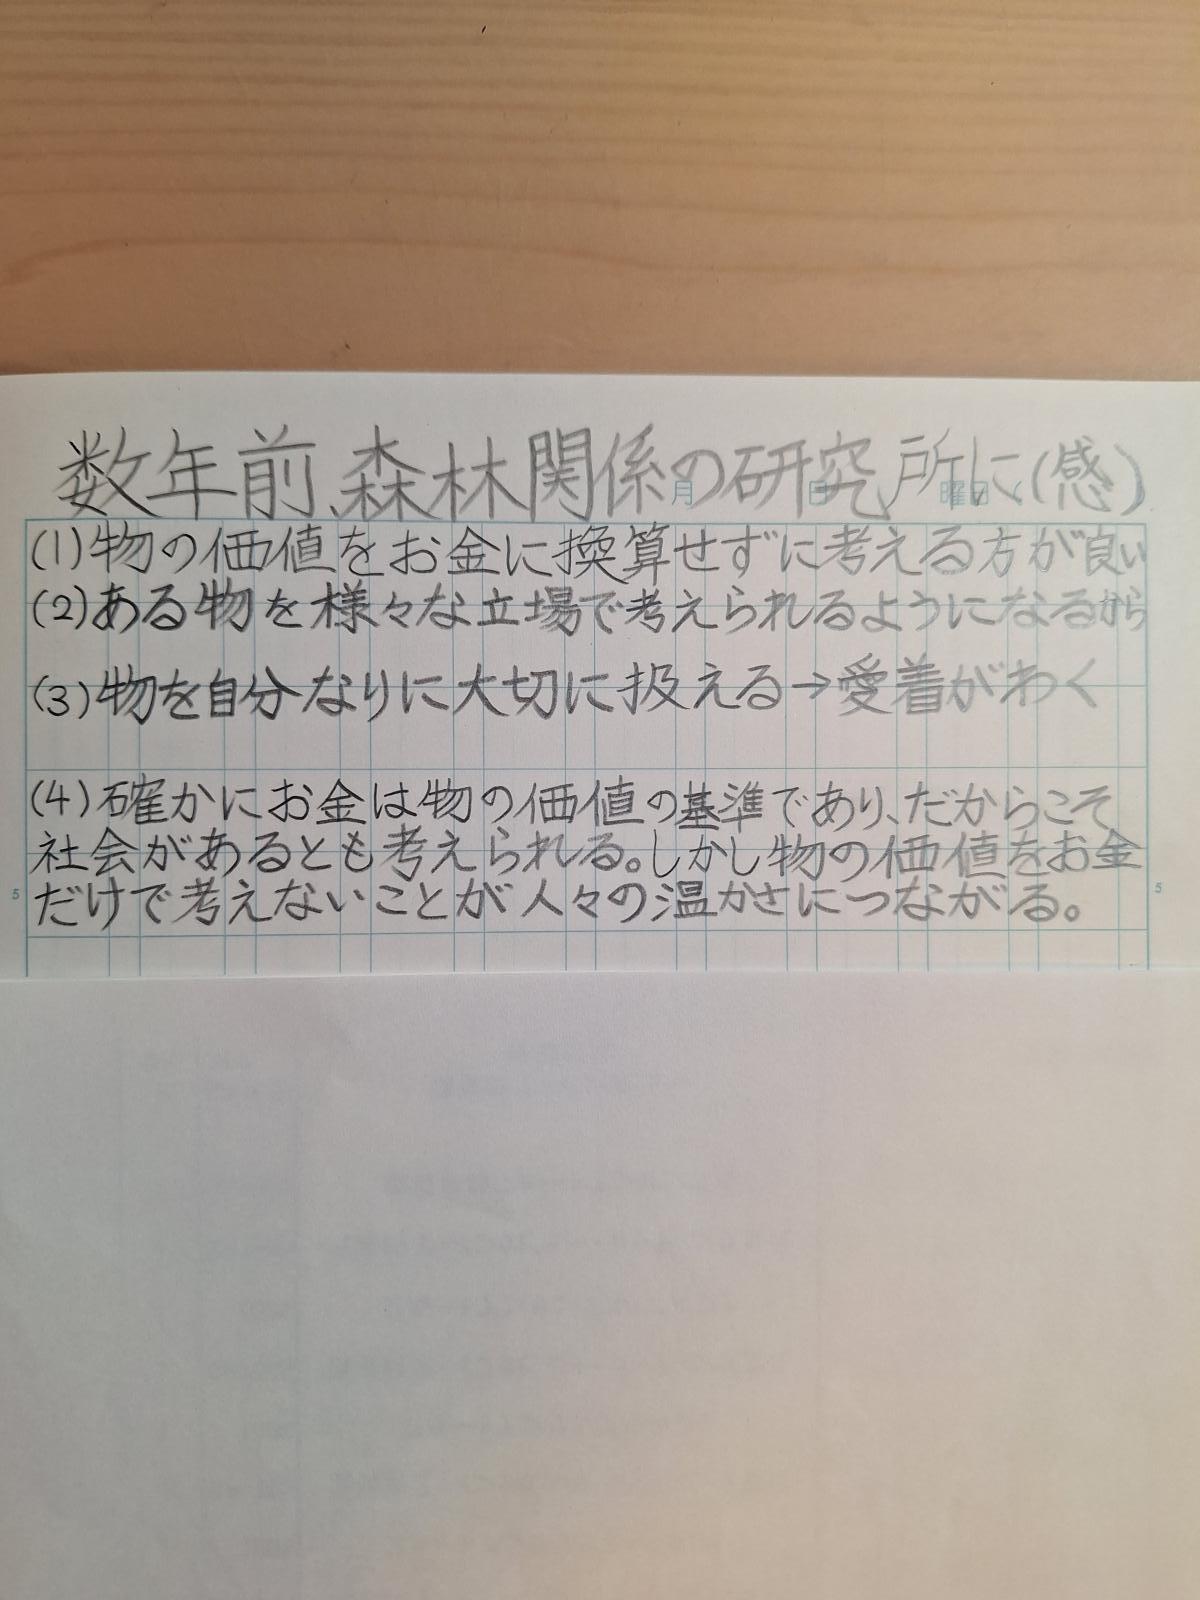 数年前、森林関係の研究所に(感)
月 日 曜日
(1)物の価値をお金に換算せずに考える方が良い
(2)ある物を様々な立場で考えられるようになるから
(3)物を自分なりに大切に扱える→愛着がわく
(4)確かにお金は物の価値の基準であり、だからこそ
社会があるとも考えられる。しかし物の価値をお金
5 だけで考えないことが人々の温かさにつながる。 5